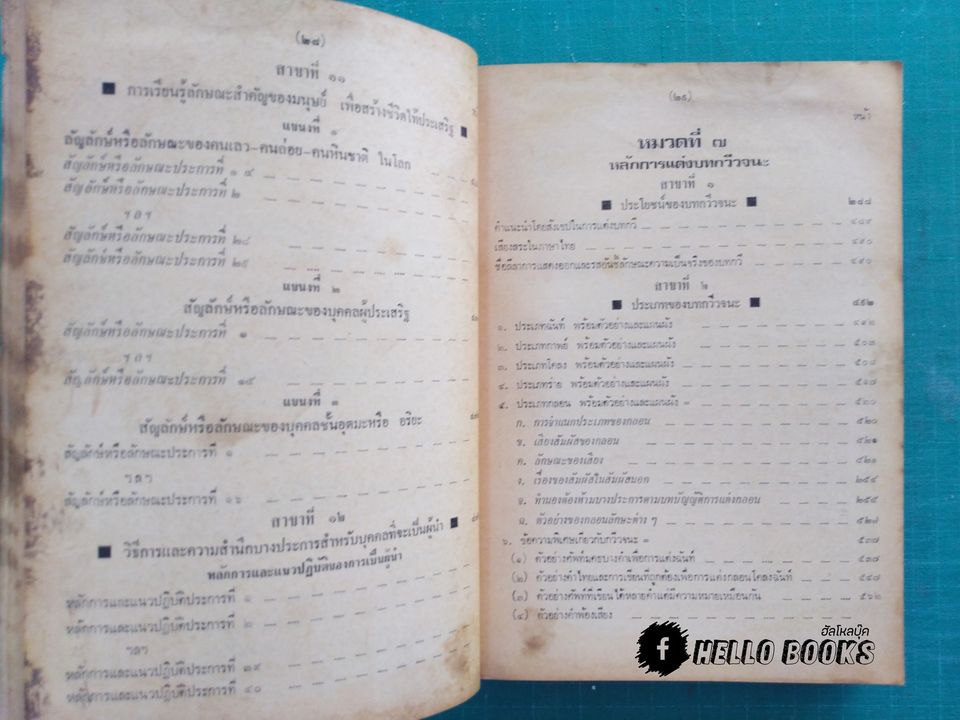 (๒๘)
สาขาที่ ๑๑
■ การเรียนรู้ลักษณะสำคัญของมนุษย์ เพื่อสร้างชีวิตให้ประเสริฐ ■
แขนงที่ ๑
สัญลักษ์หรือลักษณะของคนเลว-คนถ่อย-คนหินชาติ ในโลก
สัญลักษ์หรือลักษณะประการที่ ๑
สัญลักษ์หรือลักษณะประการที่ ๒
ฯลฯ
สัญลักษ์หรือลักษณะประการที่ ๒๘
สัญลักษ์หรือลักษณะประการที่ ๒๙
แขนงที่ ๒
สัญลักษ์หรือลักษณะของบุคคลผู้ประเสริฐ
สัญลักษ์หรือลักษณะประการที่ ๑
ฯลฯ
สัญลักษ์หรือลักษณะประการที่ ๑๔
แขนงที่ ๓
สัญลักษ์หรือ ลักษณะของบุคคลชั้นอุตมะหรือ อริยะ
สัญลักษ์หรือลักษณะประการที่ ๑
ฯลฯ
สัญลักษ์หรือลักษณะประการที่ ๑๖
สาขาที่ ๑๒
■ วิธีการและความสำนึกบางประการสำหรับบุคคลที่จะเป็นผู้นำ ■
หลักการและแนวปฏิบัติของการเป็นผู้นำ
หลักการและแนวปฏิบัติประการที่ ๑
หลักการและแนวปฏิบัติประการที่ ๒
ฯลฯ
หลักการและแนวปฏิบัติประการที่ ๓๙
หลักการและแนวปฏิบัติประการที่ ๔๐
(๒๙)
หน้า
หมวดที่ ๗
หลักการแต่งบทกวีวจนะ
สาขาที่ ๑
■ ประโยชน์ของบทกวีวจนะ ■
คำแนะนำโดยสังเขปในการแต่งบทกวี ๔๘๙
เสียงสระในภาษาไทย ๔๙๐
ชื่อลีลาการแสดงออกและรสอันชี้ลักษณะความเป็นจริงของบทกวี ๔๙๐
สาขาที่ ๒
■ ประเภทของบทกวีวจนะ ■ ๔๙๒
๑. ประเภทฉันท์ พร้อมตัวอย่างและแผนผัง ๔๙๒
๒. ประเภทกาพย์ พร้อมตัวอย่างและแผนผัง ๕๐๓
๓. ประเภทโคลง พร้อมตัวอย่างและแผนผัง ๕๐๘
๔. ประเภทร่าย พร้อมตัวอย่างและแผนผัง ๕๑๗
๕. ประเภทกลอน พร้อมตัวอย่างและแผนผัง ๕๒๐
ก. การจำแนกประเภทของกลอน ๕๒๐
ข. เสียงสัมผัสของกลอน ๕๒๑
ค. ลักษณะของเสียง ๕๒๑
ง. เรื่องของสัมผัสในสัมผัสนอก
จ. ทำนองต้องห้ามบางประการตามบทบัญญัติการแต่งกลอน
ฉ. ตัวอย่างของกลอนลักษณะต่าง ๆ ๕๒๘
๖. ข้อความพิเศษเกี่ยวกับกวีวจนะ ๕๓๘
(๑) ตัวอย่างศัพท์มคธบางคำเพื่อการแต่งฉันท์ ๕๓๘
(๒) ตัวอย่างคำไทยและการเขียนที่ถูกต้องเพื่อการแต่งกลอนโคลงฉันท์ ๕๕๘
(๓) ตัวอย่างศัพท์ที่เขียนได้หลายคำแต่มีความหมายเหมือนกัน ๕๖๒
(๔) ตัวอย่างคำพ้องเสียง
ฮัลโหลบุ๊ค
HELLO BOOKS